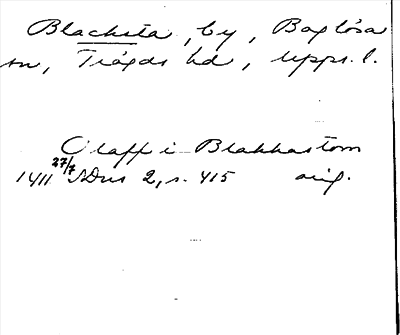 Blacksta, by, Boglösa
sn, Trögds hd, Upps. l.
Olaff i Blakkastom
1411 27/7 SDns 2, s. 415 orig.